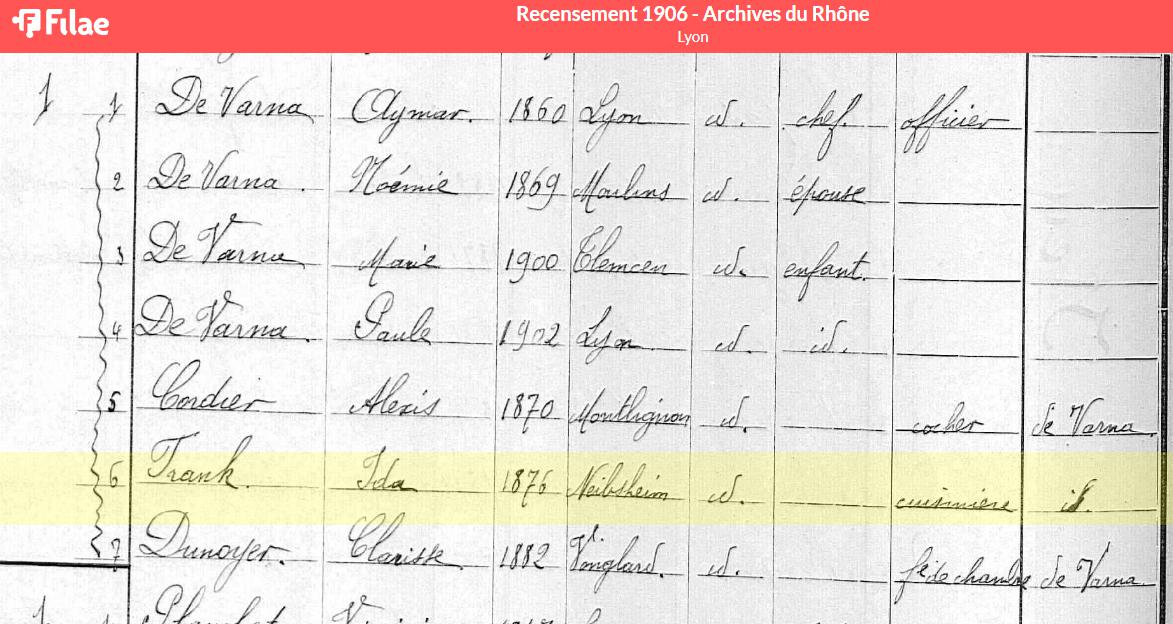 Filae
Recensement 1906 - Archives du Rhône
Lyon
1 1 De Varna Aymar. 1860 Lyon id. chef. officier
2 De Varna. Noémie 1869 Moulins id. épouse
3 De Varna Marie 1900 Tlemcen id. enfant.
4 De Varna. Paule 1902 Lyon id. id.
5 Cordier Alexis 1870 Montlignon id. cocher de Varna.
6 Frank. Ida 1876 Neibsheim id. cuisinière id.
7 Dunoyer. Clarisse. 1882 id. fe de chambre de Varna.
1